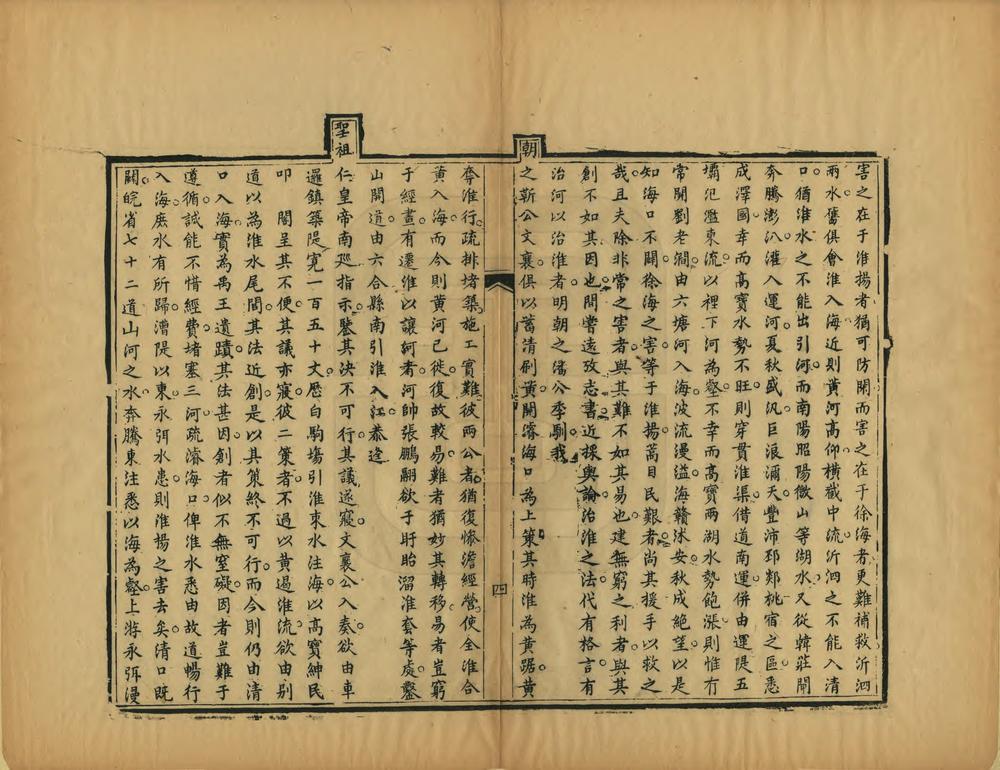 害之在于淮揚者猶可防閑而害之在于徐海者更難補救沂泗
兩水舊俱會淮入海近則黄河高仰橫截中流沂泗之不能入清
口猶淮水之不能出引河而南陽昭陽微山等湖水又從韓莊閘
奔騰澎汃灌入運河夏秋盛汛巨浪瀰天豐沛邳郯桃宿之區悉
成澤國幸而高寶水勢不旺則穿貫淮渠借道南運併由運隄五
壩氾濫東流以裡下河為壑不幸而高寶兩湖水勢飽漲則惟有
常開劉老澗由六塘河入海波流漫溢海贛沭安秋成絕望以是
知海口不闢徐海之害等于淮揚蒿目民艱者尚其援手以救之
哉且夫除非常之害者與其難不如其易也建無窮之利者與其
創不如其因也間嘗遠攷志書近採輿論治淮之法代有格言有
治河以治淮者明朝之潘公季馴我
朝之靳公文襄俱以蓄清刷黄闢濬海口為上策其時淮為黄踞黄
奪淮行疏排堵築施工實難彼兩公者猶復慘澹經營使全淮合
黄入海而今則黄河已徙復故較易難者猶妙其轉移易者豈窮
于經畫有遷淮以讓河者河帥張鵬翮欲于盱眙溜淮套等處鑿
山開道由六合縣南引淮入江恭逢
聖祖
仁皇帝南廵指示鑒其決不可行其議遂寢文襄公入奏欲由車
邏鎮築隄寬一百五十丈歷白駒塲引淮東水注海以高寶紳民
叩 閽呈其不便其議亦寢彼二策者不過以黄遏淮流欲由别
道以為淮水尾閭其法近創是以其策終不可行而今則仍由清
口入海實為禹王遺蹟其法甚因創者似不無窒礙因者豈難于
遵循誠能不惜經費堵塞三河疏濬海口俾淮水悉由故道暢行
入海庶水有所歸漕隄以東永弭水患則淮揚之害去矣清口既
闢皖省七十二道山河之水奔騰東注悉以海為壑上游永弭漫
四